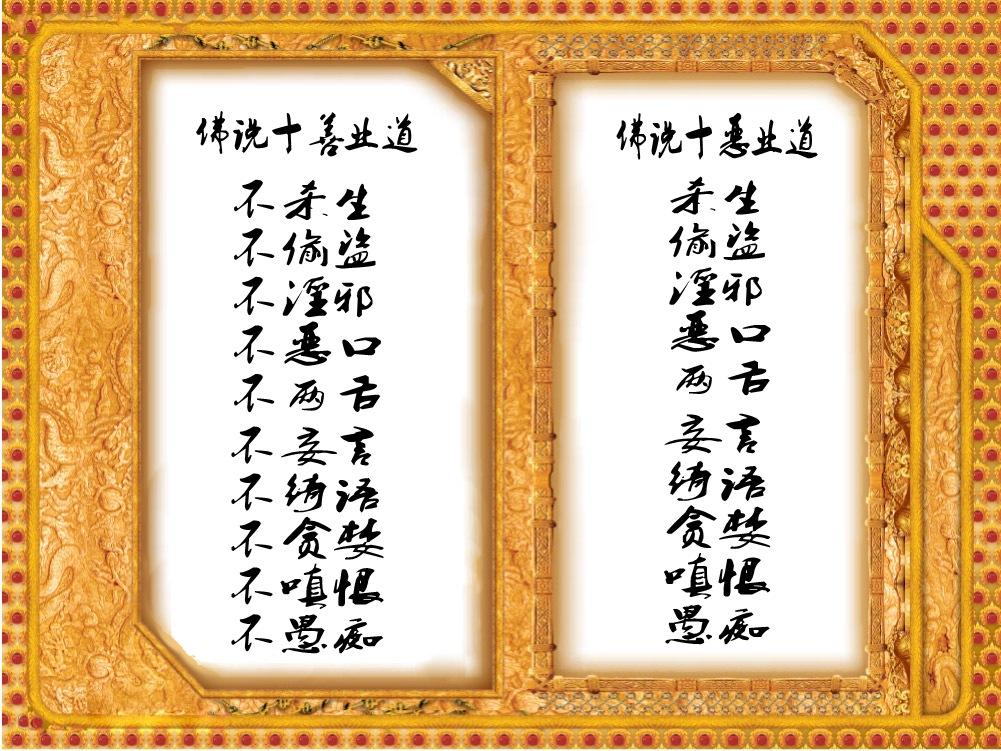 佛说十善业道
不杀生
不偷盗
不淫邪
不恶口
不两舌
不妄言
不绮语
不贪婪
不嗔恨
不愚痴
佛说十恶业道
杀生
偷盗
淫邪
恶口
两舌
妄言
绮语
贪婪
嗔恨
愚痴